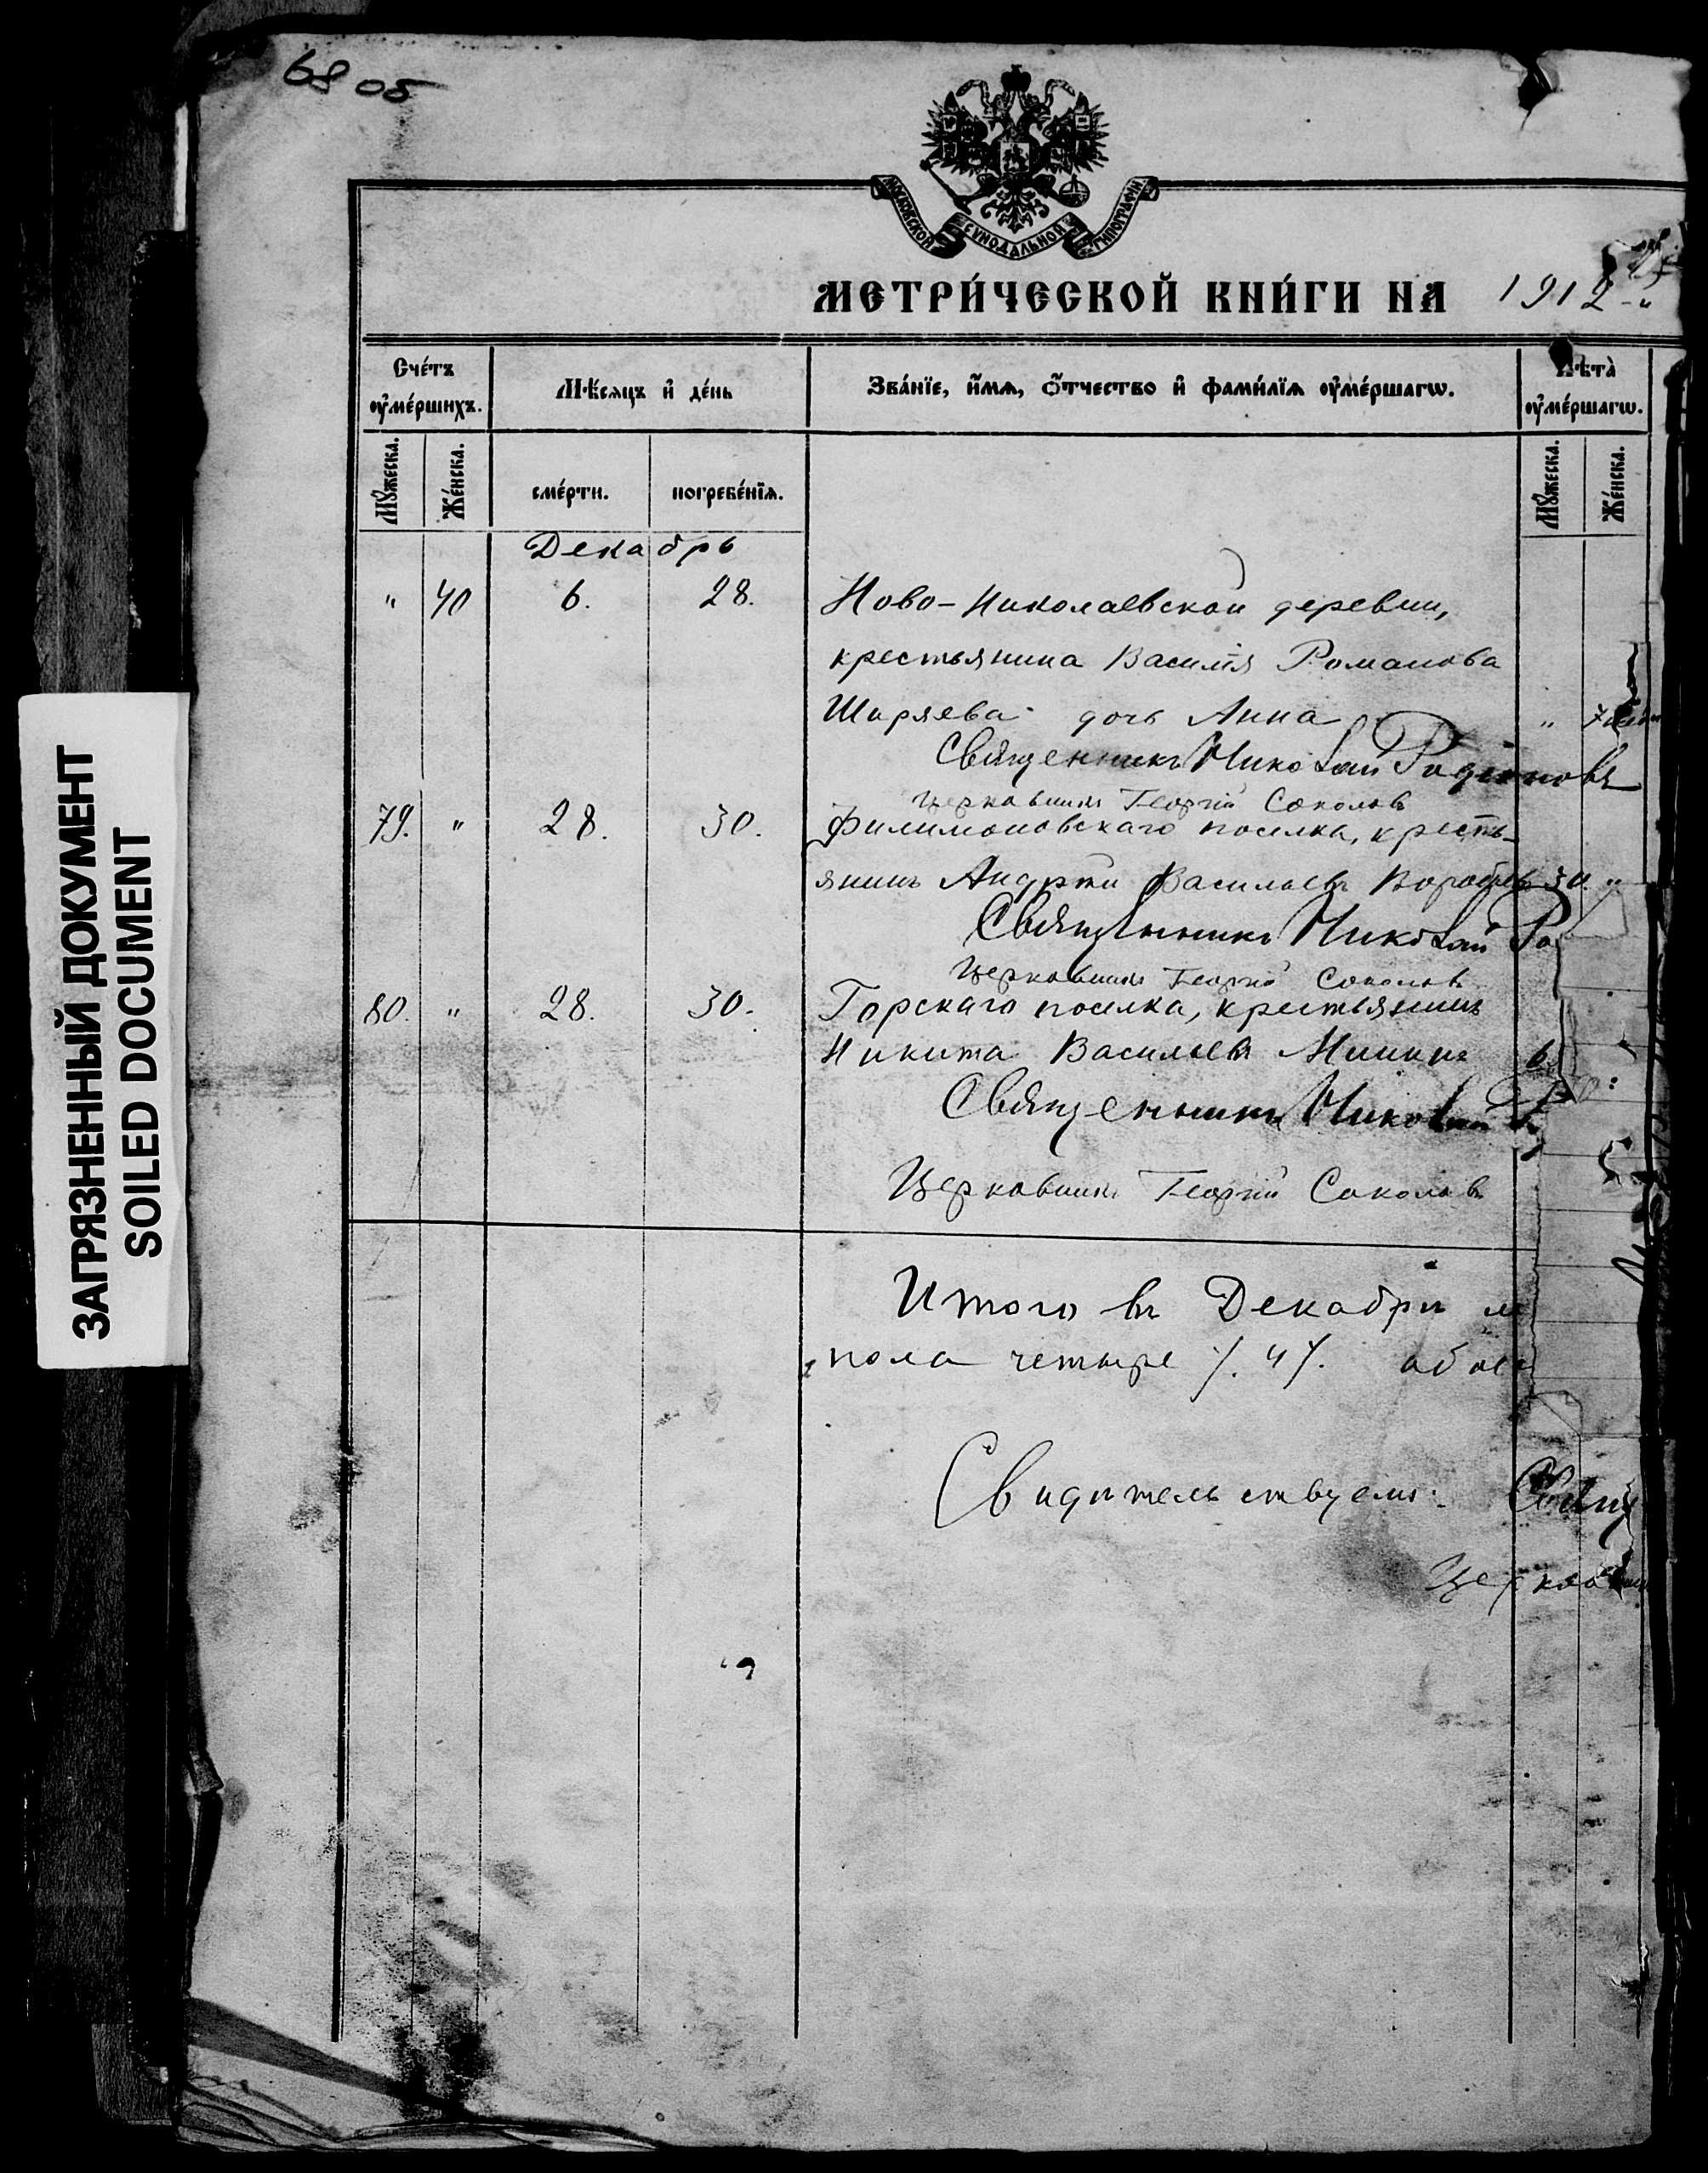 68 об
МОСКОВСКОЙ СѴНОДАЛЬНОЙ ТИПОГРАФІИ
МЕТРИ́ЧЕСКОЙ КНИ́ГИ НА 1912
Сче́тъ ᲂу҆ме́ршихъ.
Мѣ́сѧцъ и҆ де́нь
Зва́нїе, и҆́мѧ, ѻ҆́тчество и҆ фами́лїѧ ᲂу҆ме́ршагѡ.
Лѣ́та ᲂу҆ме́ршагѡ.
Мꙋ́жеска.
Же́нска.
сме́рти.
погребе́нїѧ.
Мꙋ́жеска.
Же́нска.
Декабрь
" 40 6. 28. Ново-Николаевской деревни,
крестьянина Василія Романова
Ширяева дочь Анна "
Священникъ Николай Родіоновъ
Церковникъ Георгій Соколовъ
79. " 28. 30. Филимоновскаго поселка, кресть-
янинъ Андрей Васильевъ 30. "
Священникъ Николай Ро
Церковникъ Георгій Соколовъ
80. " 28. 30. Горскаго поселка, крестьянинъ
Никита Васильевъ 6
Священникъ Николай
Церковникъ Георгій Соколовъ
Итого въ Декабрѣ м
пола четыре /.4/. обое
Свидѣтельствуемъ: Свящ
Церковни
ЗАГРЯЗНЕННЫЙ ДОКУМЕНТ
SOILED DOCUMENT